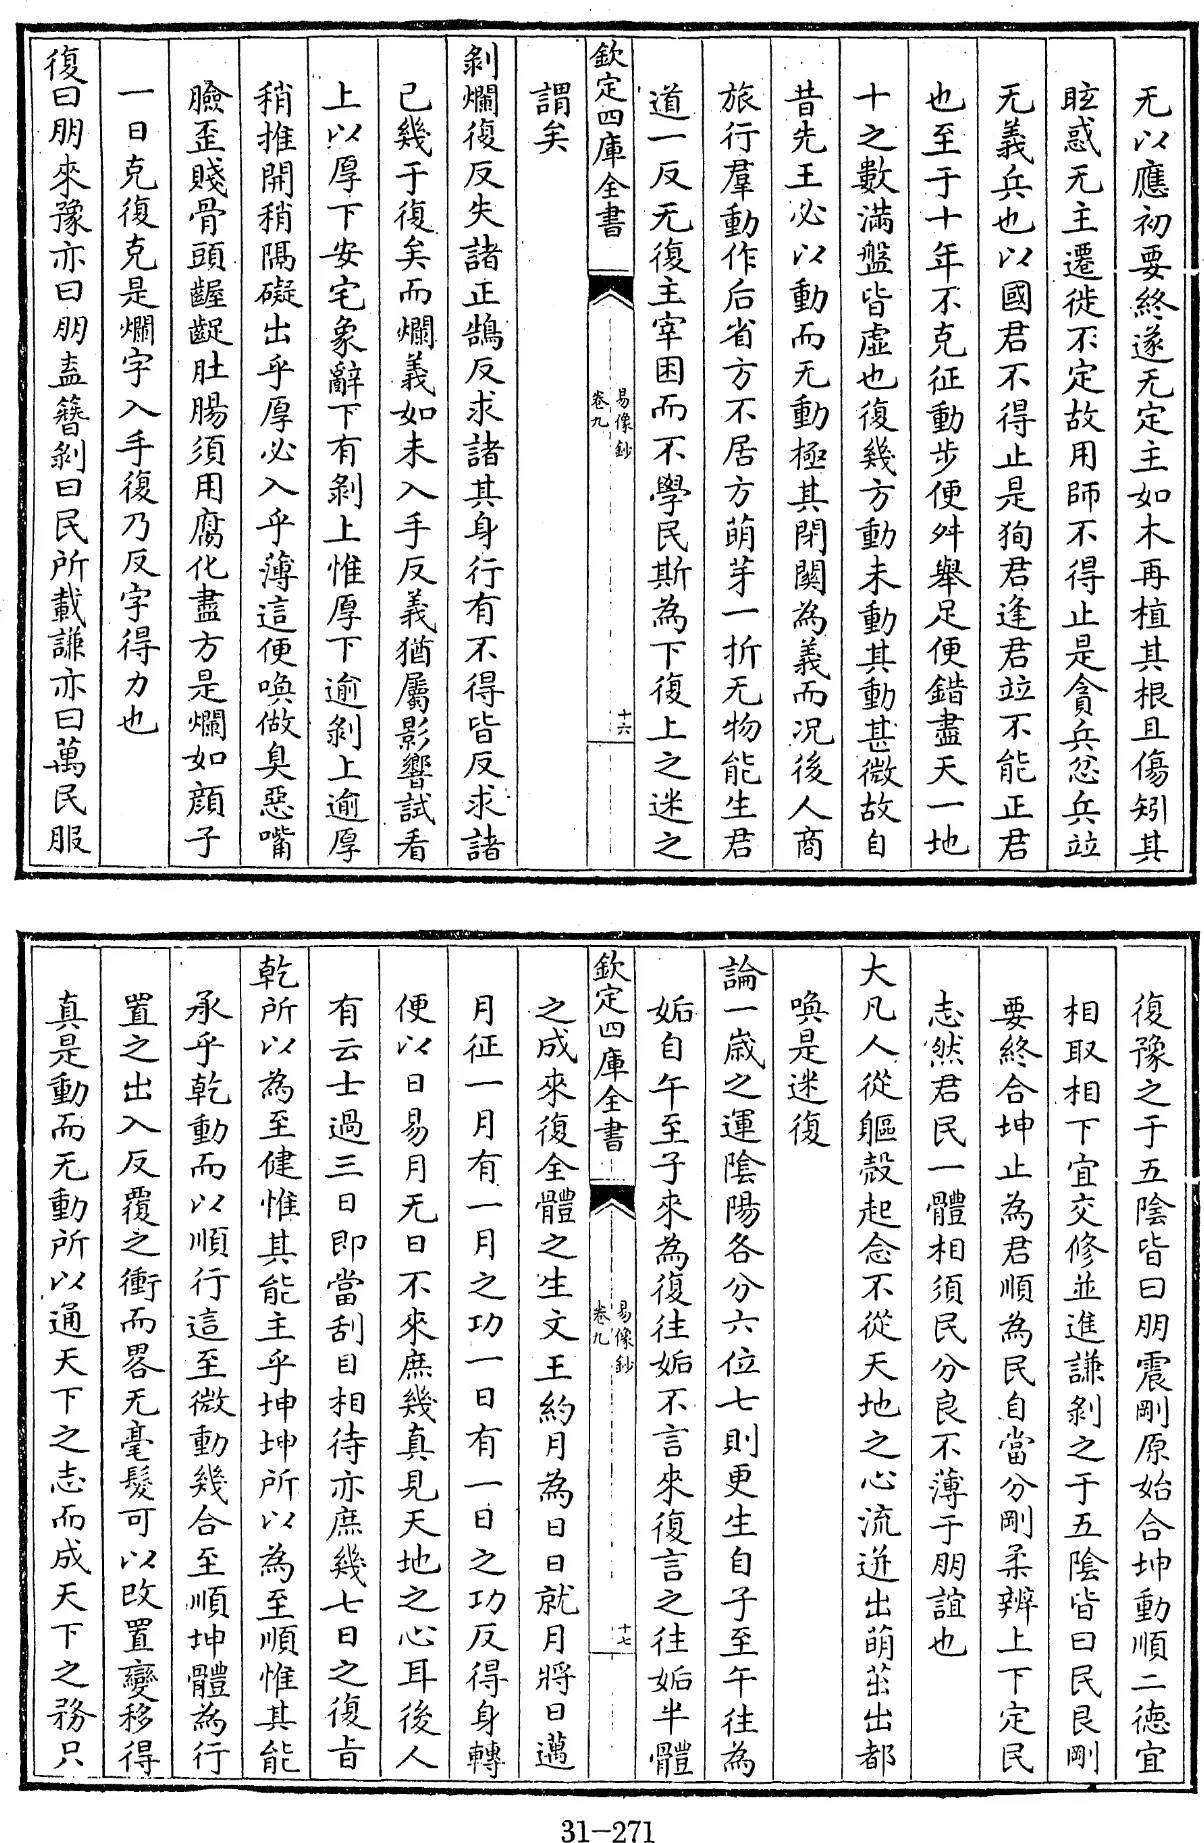 无以應初要終遂无定主如木再植其根且傷矧其
眩惑无主遷徙不定故用師不得止是貪兵忿兵竝
无義兵也以國君不得止是狥君逢君竝不能正君
也至于十年不克征動步便舛舉足便錯盡天一地
十之數滿盤皆虛也復幾方動未動其動甚微故自
昔先王必以動而无動極其閉闗為義而况後人商
旅行羣動作后省方不居方萌芽一折无物能生君
道一反无復主宰困而不學民斯為下復上之迷之
欽定四庫全書
易像鈔
卷九
十六
謂矣
剝爛復反失諸正鵠反求諸其身行有不得皆反求諸
己幾于復矣而爛義如未入手反義猶屬影響試看
上以厚下安宅象辭下有剝上惟厚下逾剝上逾厚
稍推開稍隔礙出乎厚必入乎薄這便喚做臭惡嘴
臉歪賤骨頭齷齪肚腸須用腐化盡方是爛如顔子
一日克復克是爛字入手復乃反字得力也
復曰朋來豫亦曰朋盍簪剝曰民所載謙亦曰萬民服
復豫之于五陰皆曰朋震剛原始合坤動順二徳宜
相取相下宜交修並進謙剝之于五陰皆曰民艮剛
要終合坤止為君順為民自當分剛柔辨上下定民
志然君民一體相須民分良不薄于朋誼也
大凡人從軀殼起念不從天地之心流迸出萌茁出都
喚是迷復
論一歲之運陰陽各分六位七則更生自子至午往為
姤自午至子來為復往姤不言來復言之往姤半體
欽定四庫全書
易像鈔
卷九
十七
之成來復全體之生文王約月為日日就月將日邁
月征一月有一月之功一日有一日之功反得身轉
便以日易月无日不來庶幾真見天地之心耳後人
有云士過三日即當刮目相待亦庶幾七日之復㫖
乾所以為至健惟其能主乎坤坤所以為至順惟其能
承乎乾動而以順行這至微動幾合至順坤體為行
置之出入反覆之衝而畧无毫髮可以改置變移得
真是動而无動所以通天下之志而成天下之務只
31-271